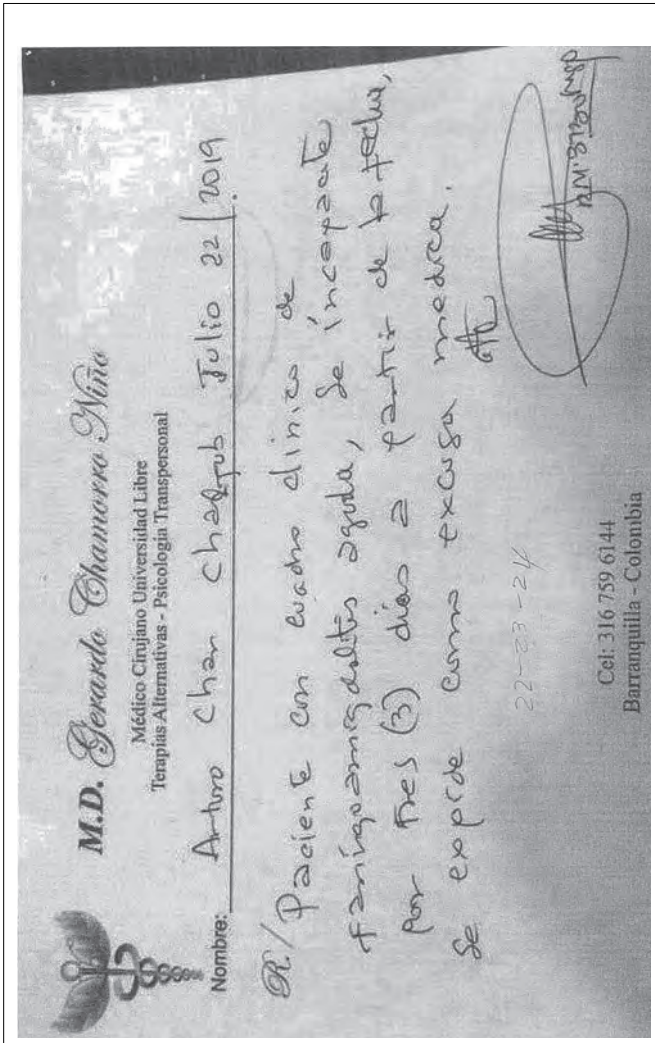 M.D. Gerardo Chamorro Niño
Médico Cirujano Universidad Libre
Terapias Alternativas - Psicología Transpersonal
Nombre: Arturo Chan Chagub Julio 22/2019
R./ Paciente con cuadro clinico de
faringoamigdalitis aguda, se incapacite
por Tres (3) días a partir de la fecha,
se expide como excusa medica.
22-23-24
Att
Cel: 316 759 6144
Barranquilla - Colombia